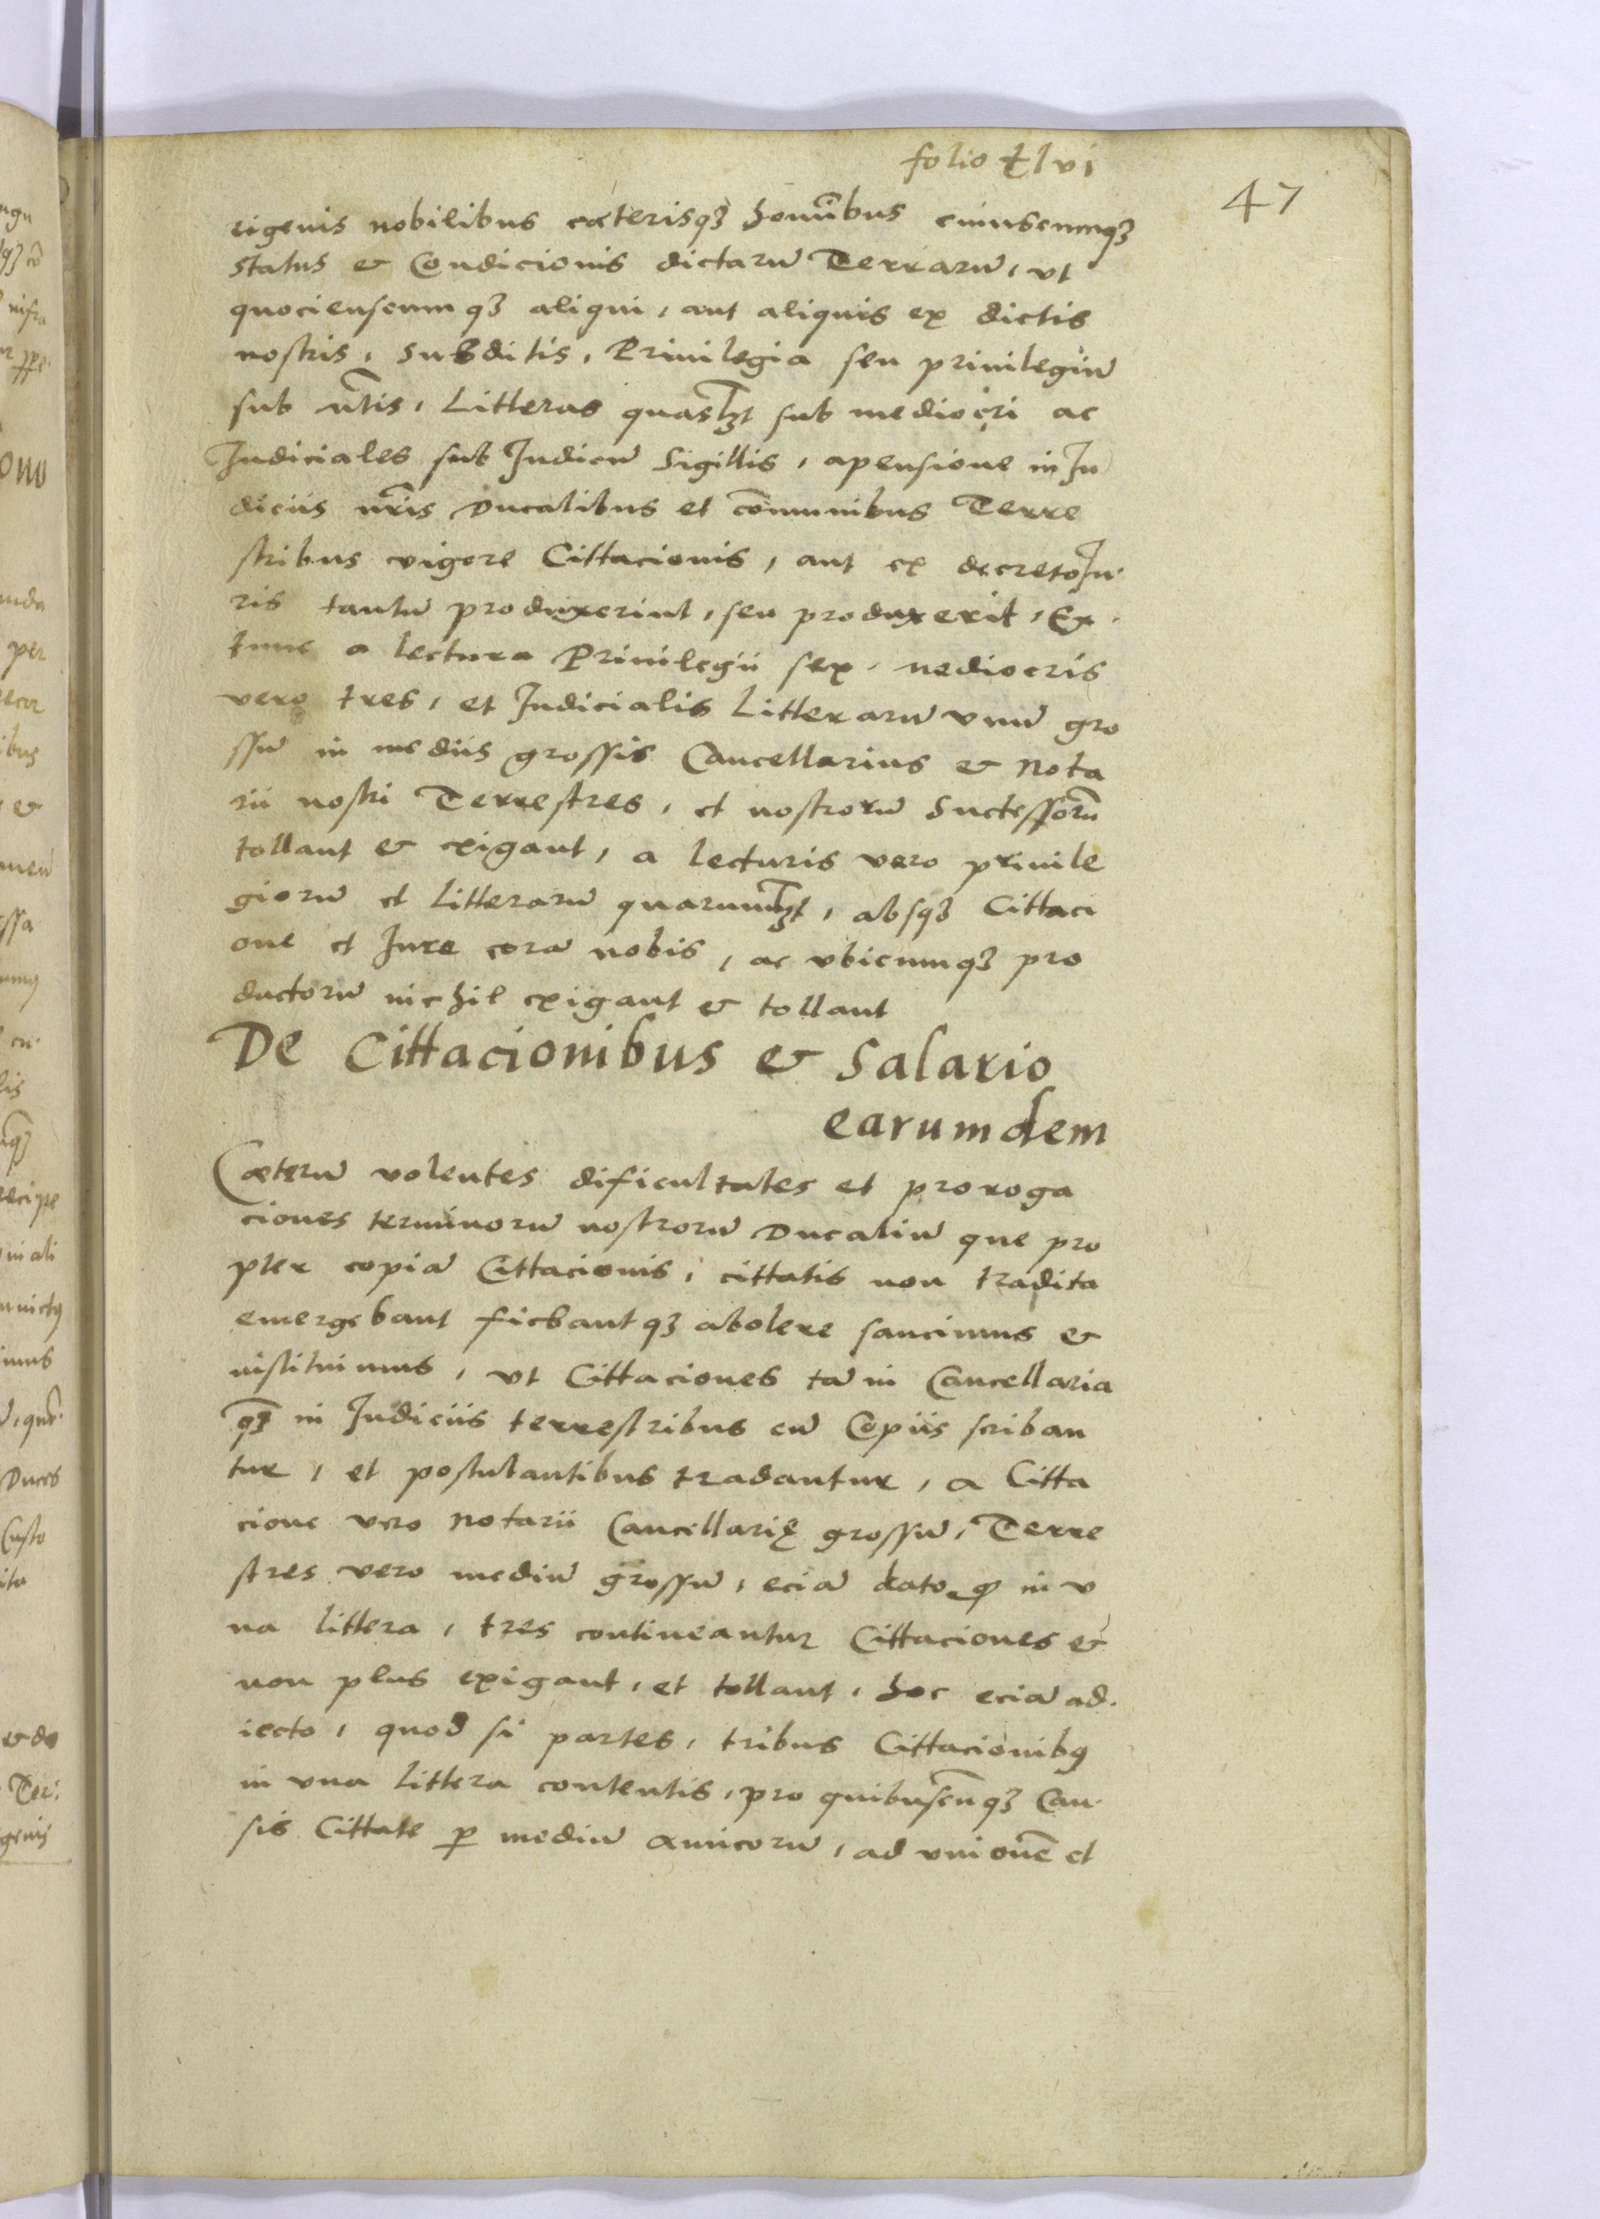 folio xlvi
47
rigenis nobilibus cæterisqꝫ homĩbus cuiuscunqꝫ
status & Condicionis dictarũ Terrarũ, vt
quocienscumqꝫ aliqui, aut aliquis ex dictis
nostris, Subditis, Priuilegia seu priuilegiũ
sub nr̃is, Litteras quasl̃ꝫt sub mediocri ac
Judiciales sub Judicũ Sigillis, apensione in Ju
diciis nr̃is Ducalibus et cõmunibus Terre
stribus vigore Cittacionis, aut ex decreto Ju.
ris tantũ produxerint, seu produxerit, Ex.
tunc a lectura Priuilegii sex. mediocris
vero tres, et Judicialis Litterarũ vnũ gro
ssũ in mediis grossis Cancellarius & Nota
rii nostri Terrestres, et nostrorũ Suctessorũ
tollant & exigant, a lecturis vero priuile
giorũ et Litterarũ quarumł̃ꝫt, absqꝫ Cittaci
one et Jure corã nobis, ac vbicumqꝫ pro
ductorũ nichil exigant & tollant
De Cittacionibus & Salario
earumdem
Cæterũ volentes dificultates et proroga
ciones terminorũ nostrorũ Ducaliũ que pro
pter copiã Cittacionis, cittatis non tradita
emergebant fiebantqꝫ abolere sancimus &
instituimus, vt Cittaciones tã in Cancellaria
qꝫ̃ in Judiciis terrestribus cũ Copiis scriban
tur, et postulantibus tradantur, a Citta
cione vero notarii Cancillarię grossũ, Terre
stres vero mediũ grossũ, eciã dato ꝙ in v
na littera, tres contineantur Cittaciones &
non plus exigant, et tollant, hoc eciã ad.
iecto, quod si partes, tribus Cittacionibꝰ
in vna littera contentis, pro quibuscũqꝫ Cau.
sis Cittate ꝑ mediũ amicorũ, ad vnionẽ et